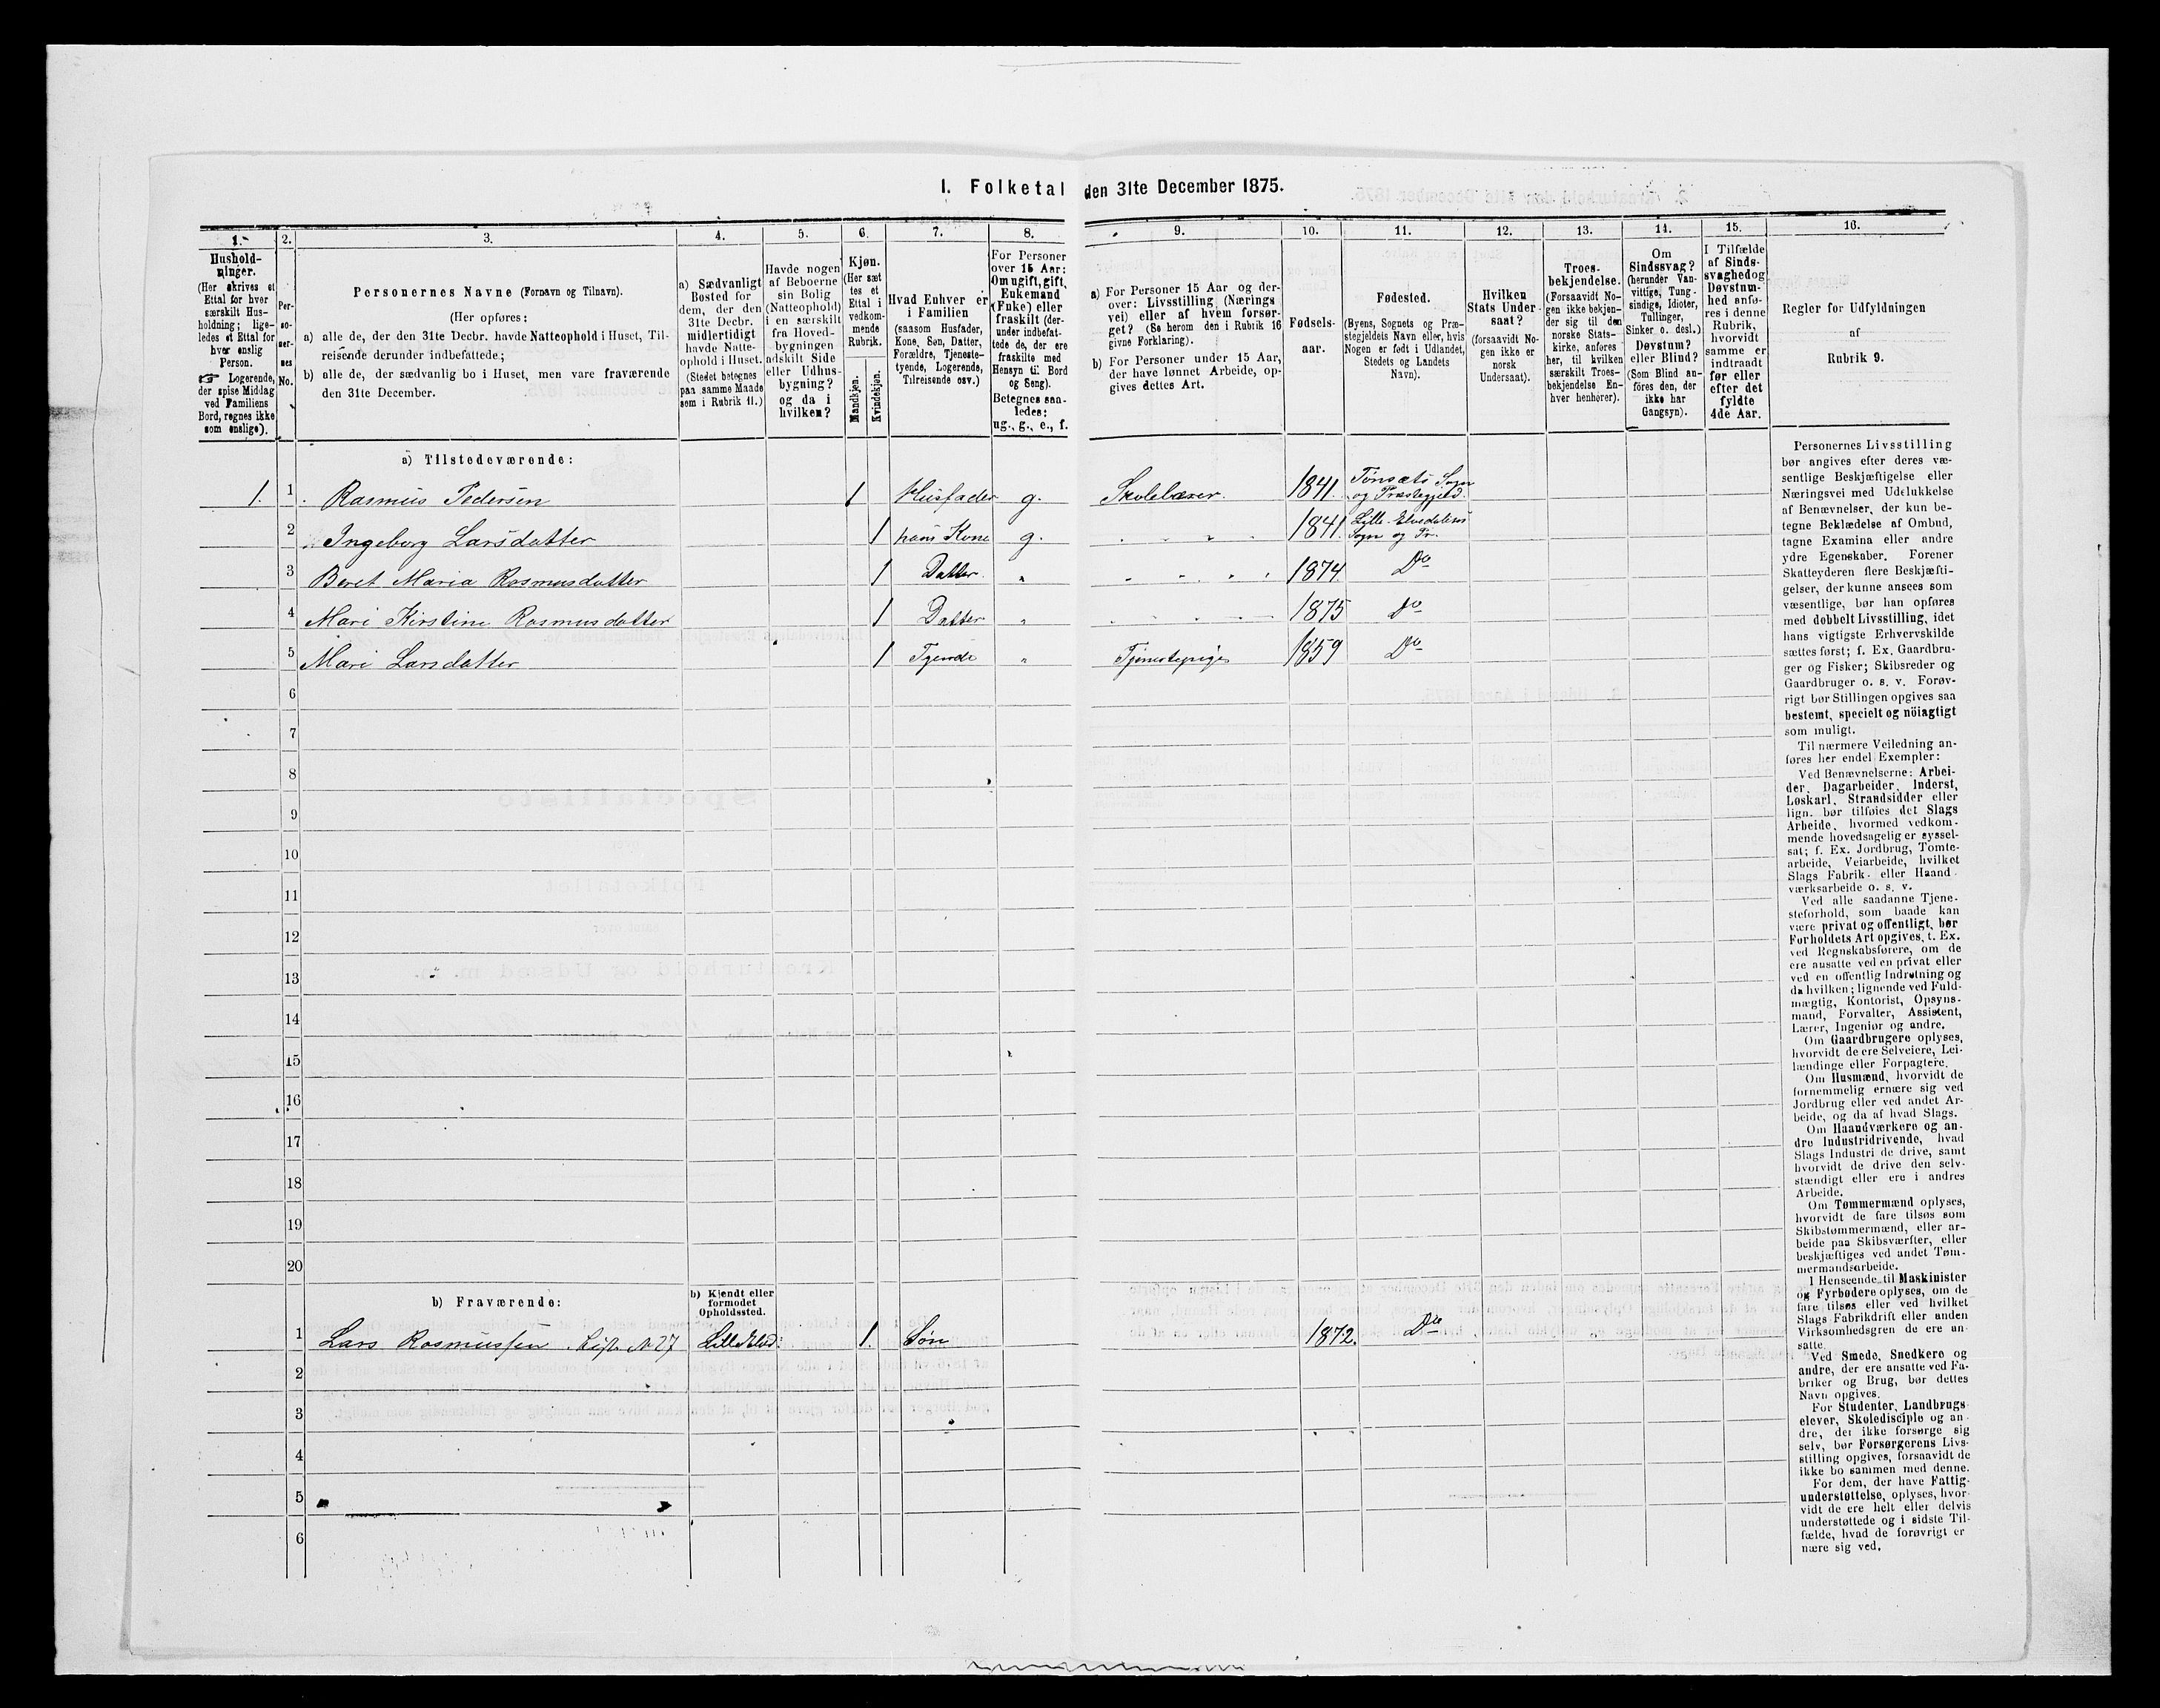 I. Folketal den 31te December 1875.
1. 2. 3. 4. 5. 6. 7. 8. 9. 10. 11. 12. 13. 14. 15. 16.
Hushold-
ninger.
(Her skrives et
Ettal for hver
særskilt Hus-
holdning; lige-
ledes et Ettal for
hver enslig
Person.
☞ Logerende,
der spise Middag
ved Familiens
Bord, regnes ikke
som enslige).
Per-
so-
ner-
nes
No.
Personernes Navne (Fornavn og Tilnavn).
(Her opføres:
a) alle de, der den 31te Decbr. havde Natteophold i Huset, Til-
reisende derunder indbefattede;
b) alle de, der sædvanlig bo i Huset, men vare fraværende
den 31te December.
a) Sædvanligt
Bosted for
dem, der den
31te Decbr.
midlertidigt
havde Natte-
ophold i Huset.
(Stedet betegnes
paa samme Maade
som i Rubrik 11.)
Havde nogen
af Beboerne
sin Bolig
(Natteophold)
i en særskilt
fra Hoved-
bygningen
adskilt Side
eller Udhus-
bygning?
og da i
hvilken?
Kjøn.
(Her sæt
tes et
Ettal i
vedkom-
mende
Rubrik.
Mandkjøn.
Kvindekjøn.
Hvad Enhver er
i Familien
(saasom Husfader,
Kone, Søn, Datter,
Forældre, Tjeneste-
tyende, Logerende,
Tilreisende osv.)
For Personer
over 15 Aar:
Om ugift, gift,
Enkemand
(Enke) eller
fraskilt (der-
under indbefat-
tede de, der ere
fraskilte med
Hensyn til Bord
og Seng).
Betegnes saa-
ledes:
ug., g., e., f.
a) For Personer 15 Aar og der-
over: Livsstilling (Nærings
vei) eller af hvem forsør-
get? (Se herom den i Rubrik 16
givne Forklaring).
b) For Personer under 15 Aar,
der have lønnet Arbeide, op-
gives dettes Art.
Fødsels-
aar.
Fødested.
(Byens, Sognets og Præ-
stegjeldets Navn eller, hvis
Nogen er født i Udlandet,
Stedets og Landets
Navn).
Hvilken
Stats Under-
saat?
(forsaavidt No-
gen ikke er
norsk
Undersaat).
Troes-
bekjendelse.
(Forsaavidt No-
gen ikke bekjen-
der sig til den
norske Stats-
kirke, anføres
her, til hvilken
særskilt Troes-
bekjendelse En-
hver henhører).
Om
Sindssvag?
(herunder Van-
vittige, Tung-
sindige, Idioter,
Tullinger,
Sinker o. desl.)
Døvstum?
eller Blind?
(Som Blind an-
føres den, der
ikke har
Gangsyn).
I Tilfælde
af Sinds-
svaghed og
Døvstum-
hed anfø-
res i denne
Rubrik,
hvorvidt
samme er
indtraadt
før eller
efter det
fyldte
4de Aar.
Regler for Udfyldningen
af
Rubrik 9.
a) Tilstedeværende:
1. 1 Rasmus Pedersen 1 Husfader g. Skolelærer. 1841. Tønsæts Sogn og Præstegjeld.
2 Ingeborg Larsdatter 1 hans Kone g. 1841. Lille-Elvedalens Sogn og Pr.
3 Beret Maria Rasmusdatter 1 Datter. " 1874 Do
4 Mari Kirstine Rasmusdatter 1 Datter " 1875 Do
5 Mari Larsdatter 1 Tyende " Tjenestepige 1859 Do
6
7
8
9
10
11
12
13
14
15
16
17
18
19
20
b) Fraværende:
b) Kjendt eller
formodet
Opholdssted.
1 Lars Rasmussen. Liste N 27 Lille Elvd: 1. Søn 1872. Do
2
3
4
5
6
Personernes Livsstilling
bør angives efter deres væ-
sentlige Beskjæftigelse eller
Næringsvei med Udelukkelse
af Benævnelser, der kun be-
tegne Beklædelse af Ombud,
tagne Examina eller andre
ydre Egenskaber. Forener
Skatteyderen flere Beskjæfti-
gelser, der kunne ansees som
væsentlige, bør han opføres
med dobbelt Livsstilling, idet
hans vigtigste Erhvervskilde
sættes først; f. Ex. Gaardbru-
ger og Fisker; Skibsreder og
Gaardbruger o. s. v. Forøv-
rigt bør Stillingen opgives saa
bestemt, specielt og nöiagtigt
som muligt.
Til nærmere Veiledning an-
føres her endel Exempler:
Ved Benævnelserne: Arbei-
der, Dagarbeider, Inderst,
Løskarl, Strandsidder eller
lign. bør tilføies det Slags
Arbeide, hvormed vedkom-
mende hovedsagelig er syssel-
sat; f. Ex. Jordbrug, Tomte-
arbeide, Veiarbeide, hvilket
Slags Fabrik- eller Haand-
værksarbeide o. s. v.
Ved alle saadanne Tjene-
steforhold, som baade kan
være privat og offentligt, bør
Forholdets Art opgives, t. Ex.
ved Regnskabsførere, om de
ere ansatte ved en privat eller
ved en offentlig Indretning og
da hvilken; lignende ved Fuld-
mægtig, Kontorist, Opsyns-
mand, Forvalter, Assistent,
Lærer, Ingeniør og andre.
Om Gaardbrugere oplyses,
hvorvidt de ere Selveiere, Lei-
lændinge eller Forpagtere.
Om Husmænd, hvorvidt de
fornemmelig ernære sig ved
Jordbrug eller ved andet Ar-
beide, og da af hvad Slags.
Om Haandværkere og an-
dre Industridrivende, hvad
Slags Industri de drive, samt
hvorvidt de drive den selv-
stændigt eller ere i andres
Arbeide.
Om Tømmermænd oplyses,
hvorvidt de fare tilsøs som
Skibstømmermænd, eller ar-
beide paa Skibsværfter, eller
beskjæftiges ved andet Tøm-
mermandsarbeide.
I Henseende til Maskinister
og Fyrbødere oplyses, om de
fare tilsøs eller ved hvilket
Slags Fabrikdrift eller anden
Virksomhedsgren de ere an-
satte.
Ved Smede, Snedkere og
andre, der ere ansatte ved Fa-
briker og Brug, bør dettes
Navn opgives.
For Studenter, Landbrugs-
elever, Skoledisciple og an-
dre, der ikke forsørge sig
selv, bør Forsørgerens Livs-
stilling opgives, forsaavidt de
ikke bo sammen med denne.
For dem, der have Fattig-
understøttelse, oplyses, hvor-
vidt de ere helt eller delvis
understøttede og i sidste Til-
fælde, hvad de forøvrigt er
nære sig ved.